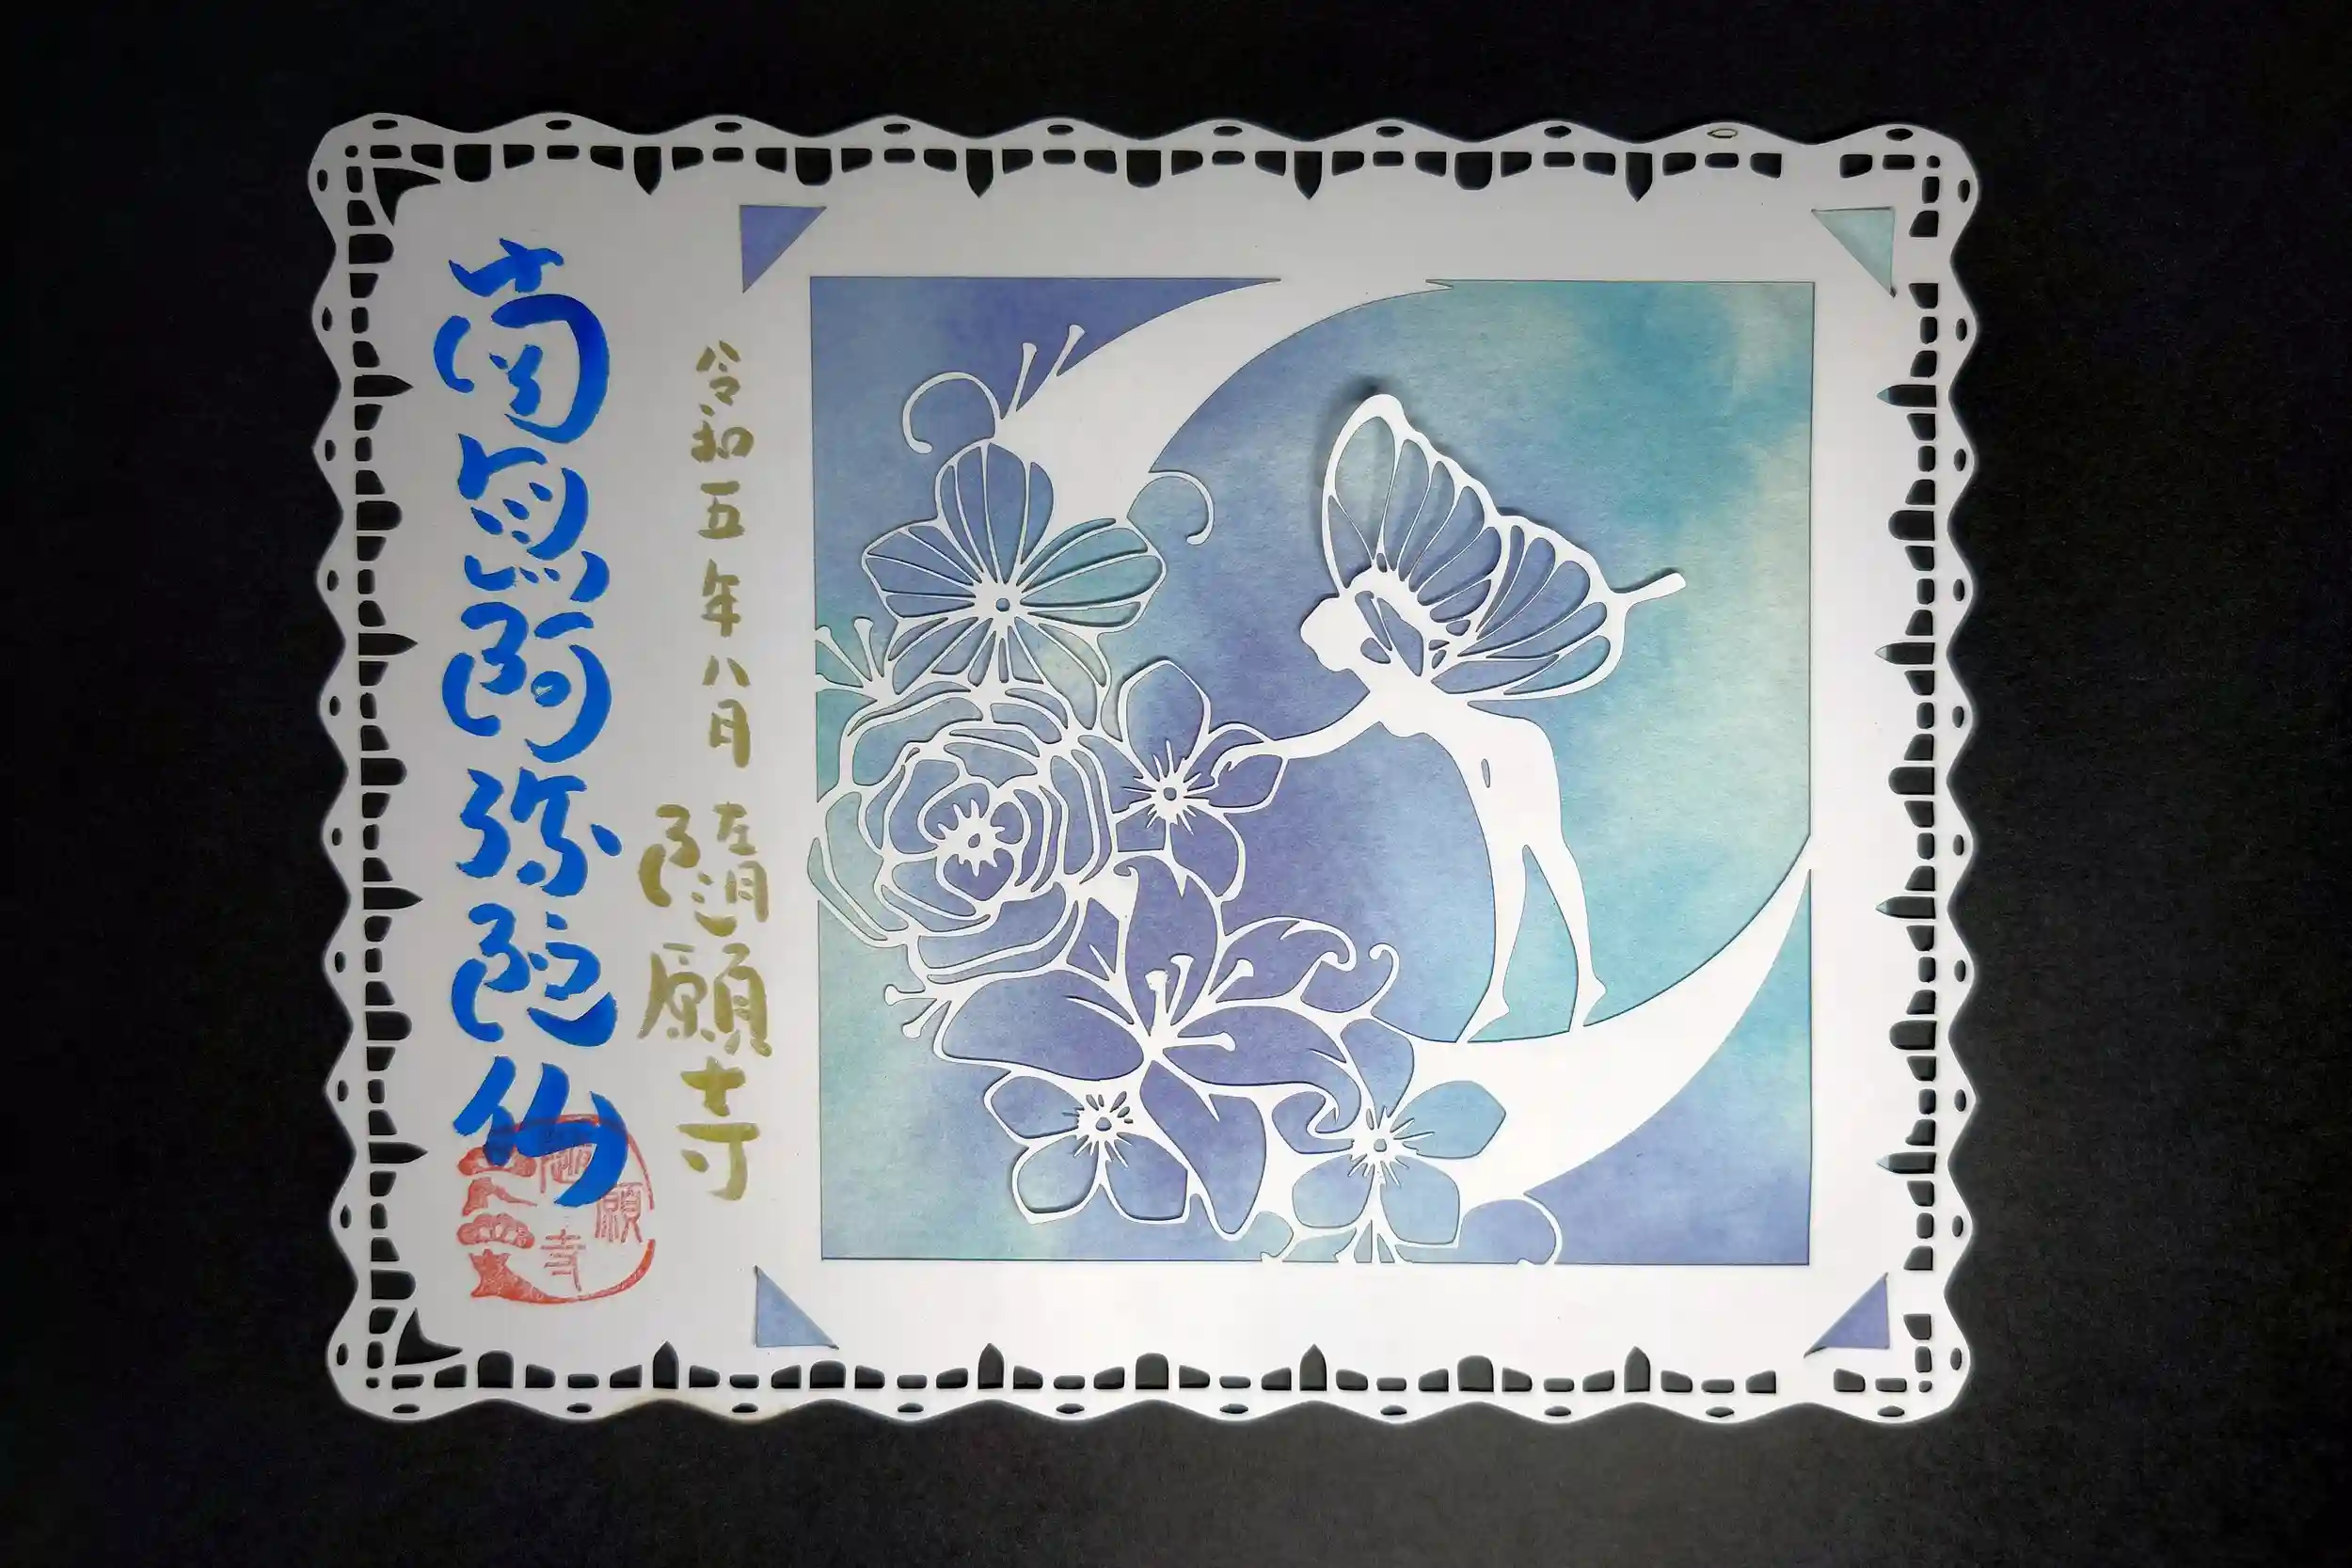 令和五年八月 隨願寺
南無阿弥陀仏
願
寺